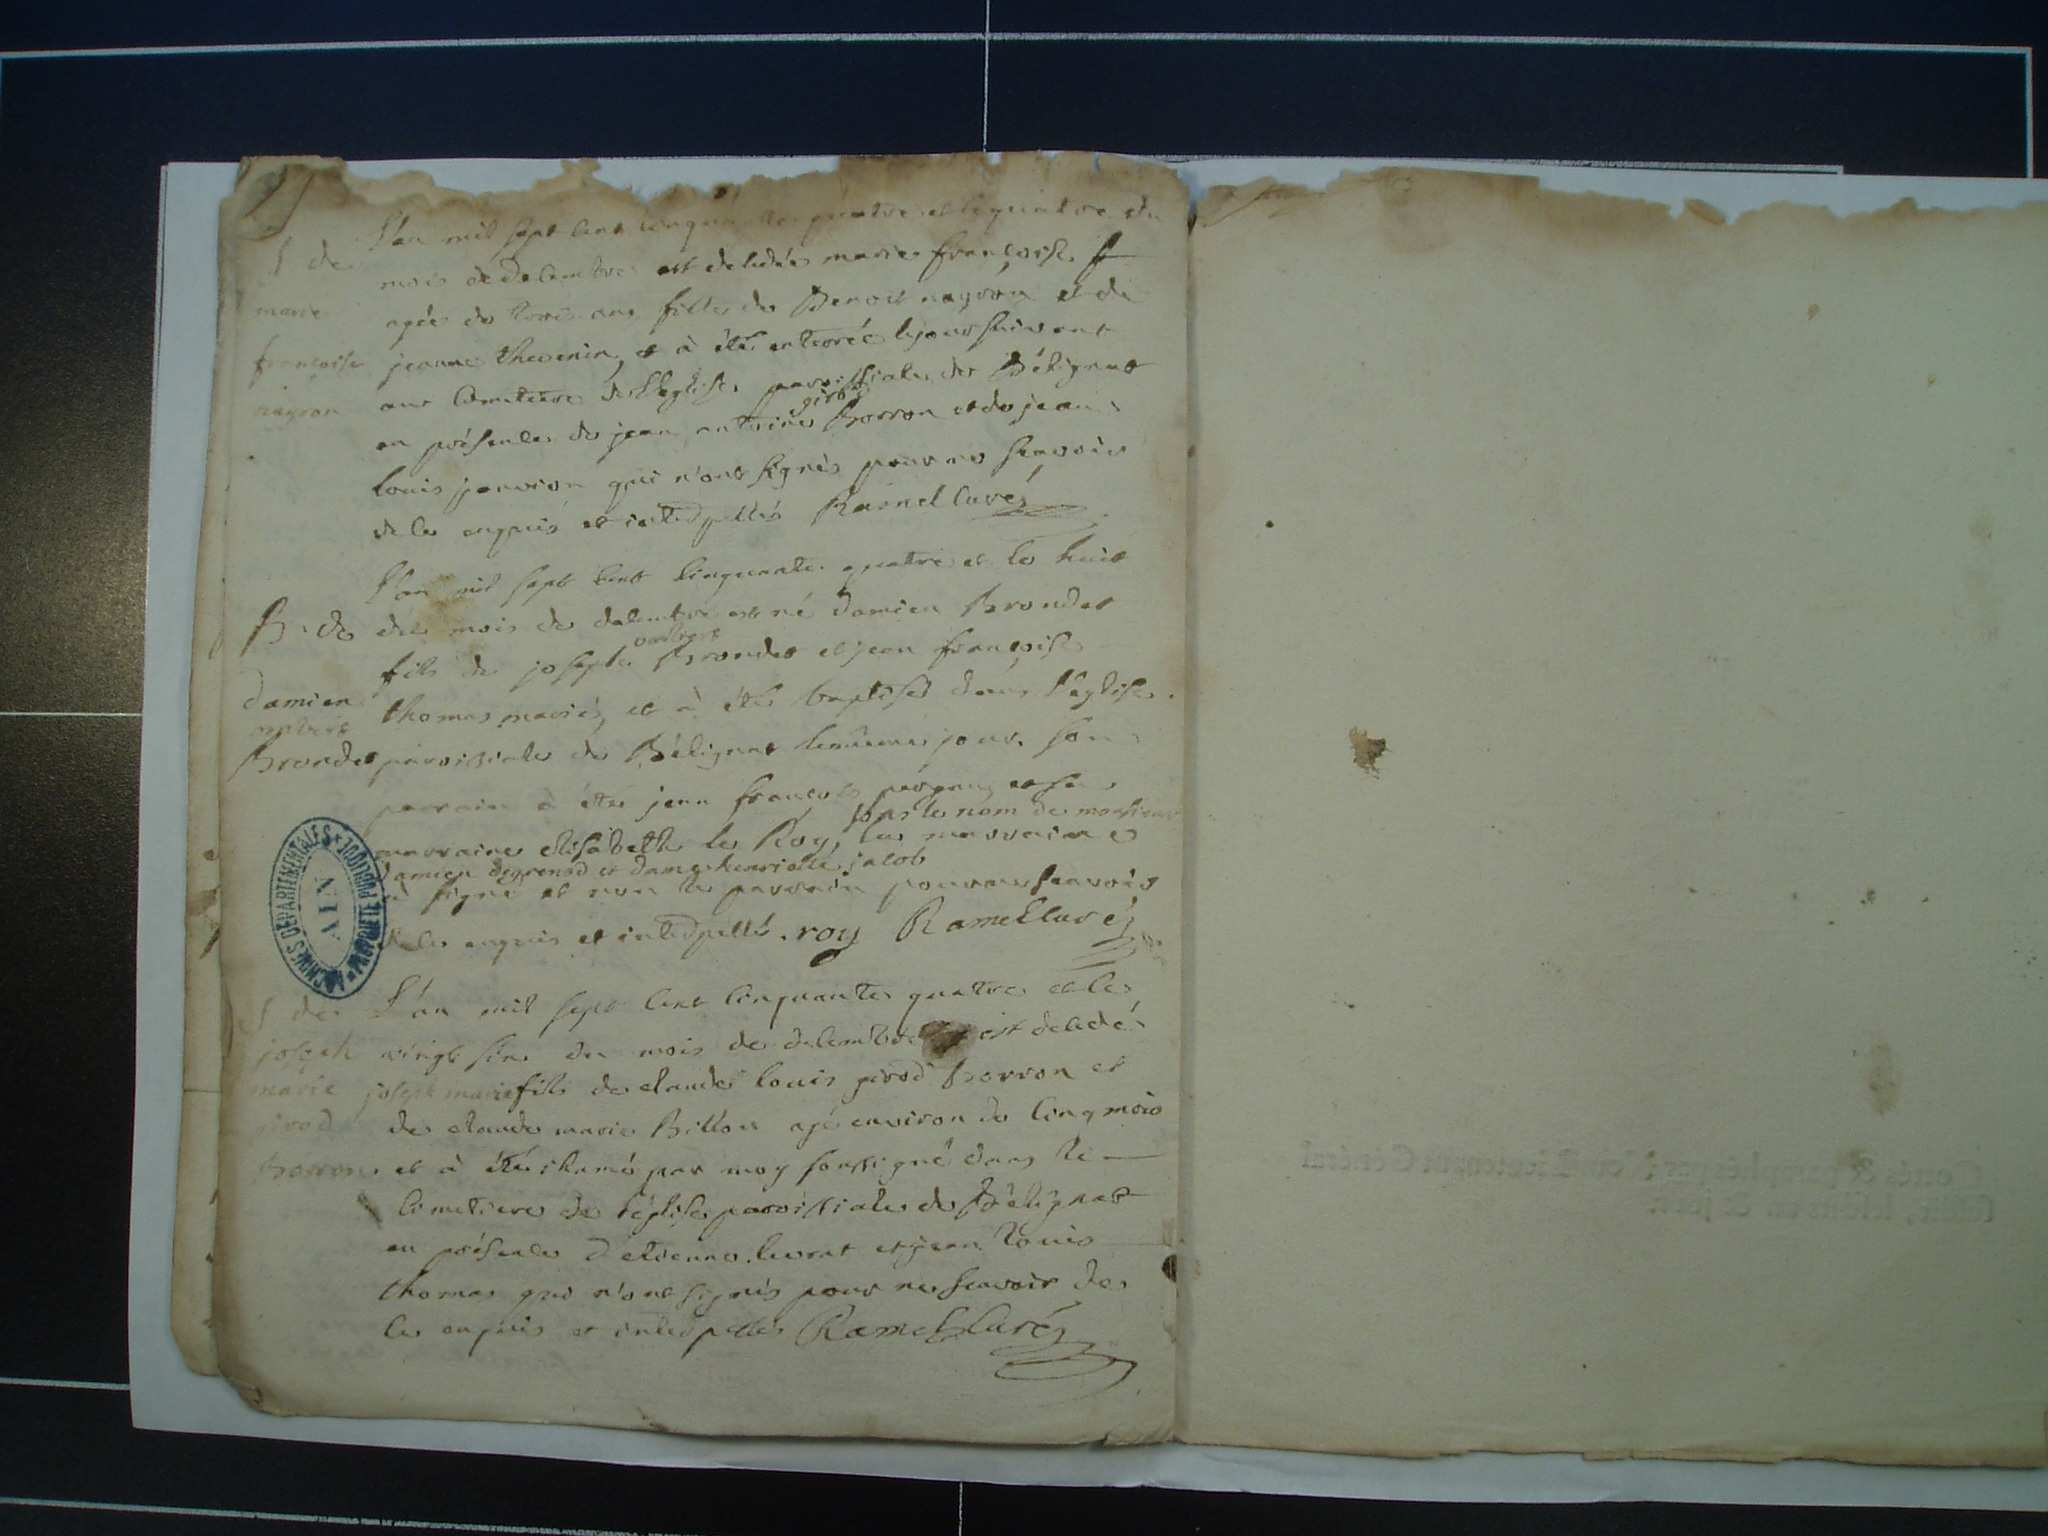 L'an mil sept cent cinquante quatre et le quatre du
S de
mois de decembre est decedée marie françoise
marie
agée de trois ans fille de Benoit nayron et de
françoise
jeanne thevenin, et à été enterrée le jour suivant
nayron
au cimetiere de l'Eglise parroissiale de Bélignat
girod
en présence de jean antoine Borron et de jean
louis janvion qui n'ont signés pour ne scavoir
de ce enquis et interpellés Ramel Curé
L'an mil sept cent cinquante quatre et le huit
B. de
du mois de decembre est né damien Brondet
fils de joseph Brondet et jean françoise
damien
thomas mariés, et à été baptisé dans l'église
Brondet
parroissiale de Bélignat le même jour, son
parrain à été jean françois et sa
sous le nom de monsieur
marraine elisabeth le Roy, la marraine
damien degrenod et dame henriette jacob
à signé et non le parrain pour ne scavoir
de ce enquis et interpellé. roy Ramel Curé
ARCHIVES DEPARTEMENTALES
AIN
PROPRIETE PUBLIQUE
S de
L'an mil sept cent cinquante quatre et le
joseph
vingt sixe du mois de decembre est decedé
marie
joseph marie fils de claude louis girod Borron et
girod
de claude marie Billon agé environ de cinq mois
Borron
et à été inhumé par moy soussigné dans le
cimetiere de l'église parroissiale de Bélignat
en présence d'etienne levrat et jean louis
thomas qui n'ont signés pour ne scavoir de
ce enquis et interpellés Ramel Curé
Cottés & paraphés par Nous Lieutenant Général